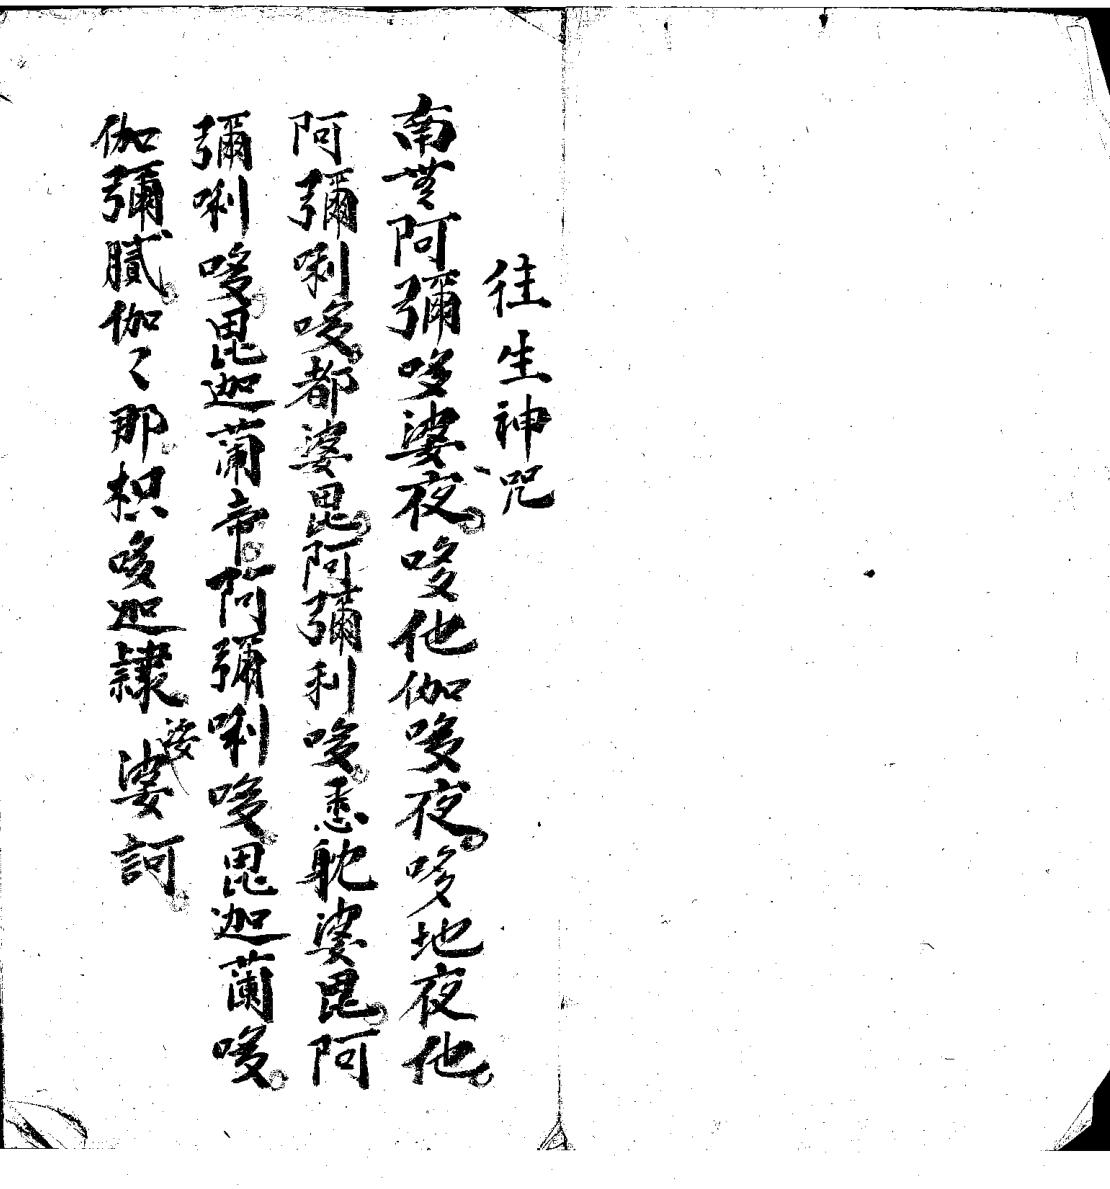 往生神咒
南無阿彌哆婆夜哆他伽哆夜哆地夜他
阿彌唎哆都婆毘阿彌利哆悉耽婆毘阿
彌唎哆毘迦蘭帝阿彌唎哆毘迦蘭哆
伽彌膩伽〻那枳哆迦隸娑婆訶